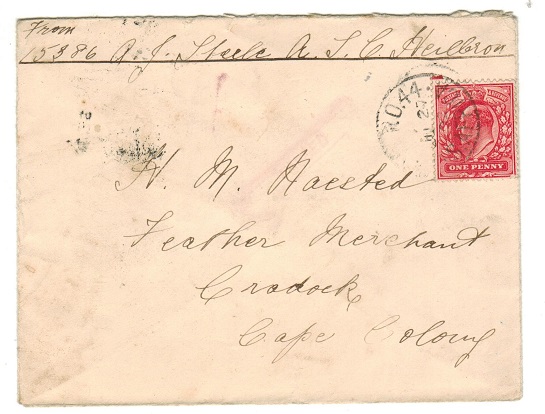 From
15386 A. J. Steele A. S. C. Heilbron
POSTAGE & REVENUE
ONE PENNY
H. M. Haested
Feather Merchant
Cradock
Cape Colony